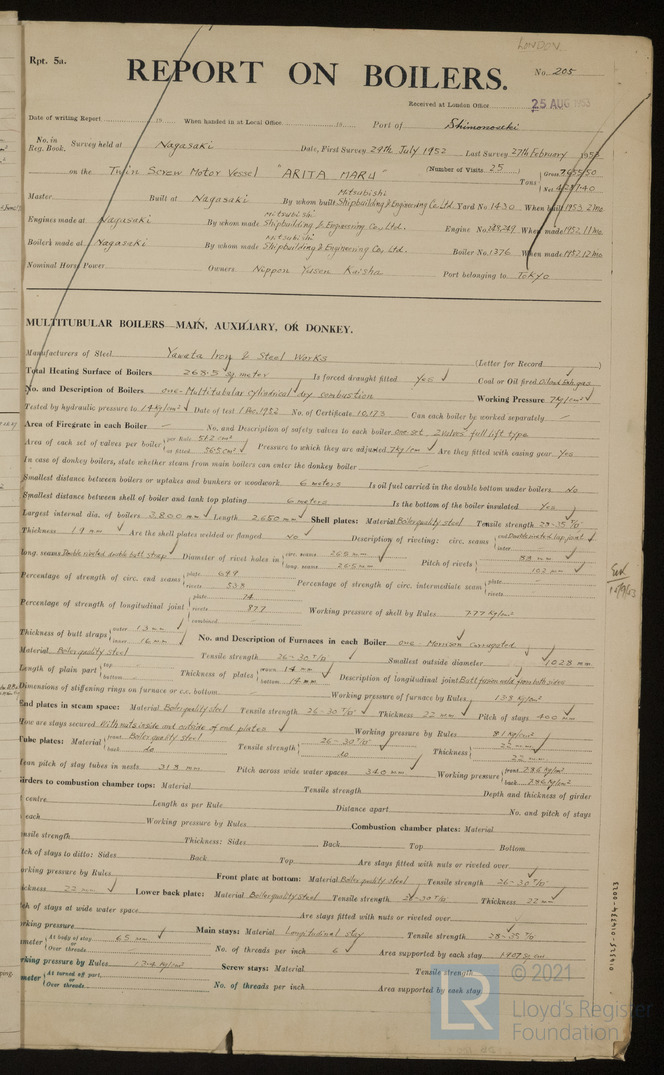 LONDON.
Rpt. 5a.
REPORT ON BOILERS.
No. 205
Received at London Office 25 AUG 1953
Date of writing Report 19 When handed in at Local Office 19 Port of Shimonoseki
No. in Reg. Book. Survey held at Nagasaki Date, First Survey 29th July 1952 Last Survey 27th February 1953
on the Twin Screw Motor Vessel "ARITA MARU" (Number of Visits 25) Tons Gross Net
Master Built at Nagasaki By whom built Mitsubishi Shipbuilding & Engineering Co. Ltd. Yard No. 1430 When built 1953. 2 mo.
Engines made at Nagasaki By whom made Mitsubishi Shipbuilding & Engineering Co., Ltd. Engine No. When made 1952. 11 mo.
Boilers made at Nagasaki By whom made Mitsubishi Shipbuilding & Engineering Co., Ltd. Boiler No. 1376 When made 1952. 12 mo.
Nominal Horse Power Owners Nippon Yusen Kaisha Port belonging to Tokyo
MULTITUBULAR BOILERS MAIN, AUXILIARY, OR DONKEY.
Manufacturers of Steel Yawata Iron & Steel Works (Letter for Record )
Total Heating Surface of Boilers 268.5 sq meter Is forced draught fitted Yes Coal or Oil fired
No. and Description of Boilers one-Multitubular cylindrical dry combustion Working Pressure 7 kg/cm²
Tested by hydraulic pressure to 14 kg/cm² Date of test 1 Dec. 1952 No. of Certificate 10,173 Can each boiler be worked separately
Area of Firegrate in each Boiler No. and Description of safety valves to each boiler one set, 2 valves full lift type
Area of each set of valves per boiler per Rule 51.2 cm² as fitted 56.5 cm² Pressure to which they are adjusted 7 kg/cm² Are they fitted with easing gear Yes
In case of donkey boilers, state whether steam from main boilers can enter the donkey boiler
Smallest distance between boilers or uptakes and bunkers or woodwork 6 meters Is oil fuel carried in the double bottom under boilers No
Smallest distance between shell of boiler and tank top plating 6 meters Is the bottom of the boiler insulated Yes
Largest internal dia. of boilers 3,800 mm Length 2,650 mm Shell plates: Material Boiler quality steel Tensile strength
Thickness 19 mm Are the shell plates welded or flanged No Description of riveting: circ. seams end Double riveted lap joint inter.
long. seams Double riveted double butt strap Diameter of rivet holes in circ. seams 26.5 mm long. seams 26.5 mm Pitch of rivets 88 mm 102 mm
Percentage of strength of circ. end seams plate 69.9 rivets 53.8 Percentage of strength of circ. intermediate seam plate rivets
Percentage of strength of longitudinal joint plate 74 rivets 87.7 combined Working pressure of shell by Rules 7.77 kg/cm²
Thickness of butt straps outer 13 mm inner 16 mm No. and Description of Furnaces in each Boiler one Morrison Corrugated
Material Boiler quality steel Tensile strength Smallest outside diameter 1028 mm
Length of plain part top bottom Thickness of plates crown 14 mm bottom 14 mm Description of longitudinal joint Butt fusion weld from both sides
Dimensions of stiffening rings on furnace or c.c. bottom Working pressure of furnace by Rules 13.8 kg/cm²
End plates in steam space: Material Boiler quality steel Tensile strength Thickness 22 mm Pitch of stays 400 mm
How are stays secured With nuts inside and outside of end plates Working pressure by Rules 8.1 kg/cm²
Tube plates: Material front Boiler quality steel back do Tensile strength do Thickness 22 mm 22 mm
Mean pitch of stay tubes in nests 31.8 mm Pitch across wide water spaces 340 mm Working pressure front 7.86 kg/cm² back 7.86 kg/cm²
Girders to combustion chamber tops: Material Tensile strength Depth and thickness of girder
centre Length as per Rule Distance apart No. and pitch of stays
each Working pressure by Rules Combustion chamber plates: Material
strength Thickness: Sides Back Top Bottom
of stays to ditto: Sides Back Top Are stays fitted with nuts or riveted over
pressure by Rules Front plate at bottom: Material Boiler quality steel Tensile strength
22 mm Lower back plate: Material Boiler quality steel Tensile strength Thickness 22 mm
of stays at wide water space Are stays fitted with nuts or riveted over
pressure Main stays: Material Longitudinal stay Tensile strength
At body of stay 65 mm or Over threads No. of threads per inch 6 Area supported by each stay
pressure by Rules Screw stays: Material Tensile strength
At turned off part or Over threads No. of threads per inch Area supported by each stay
014525-014534-0023
© 2021
LR
Lloyd's Register
Foundation